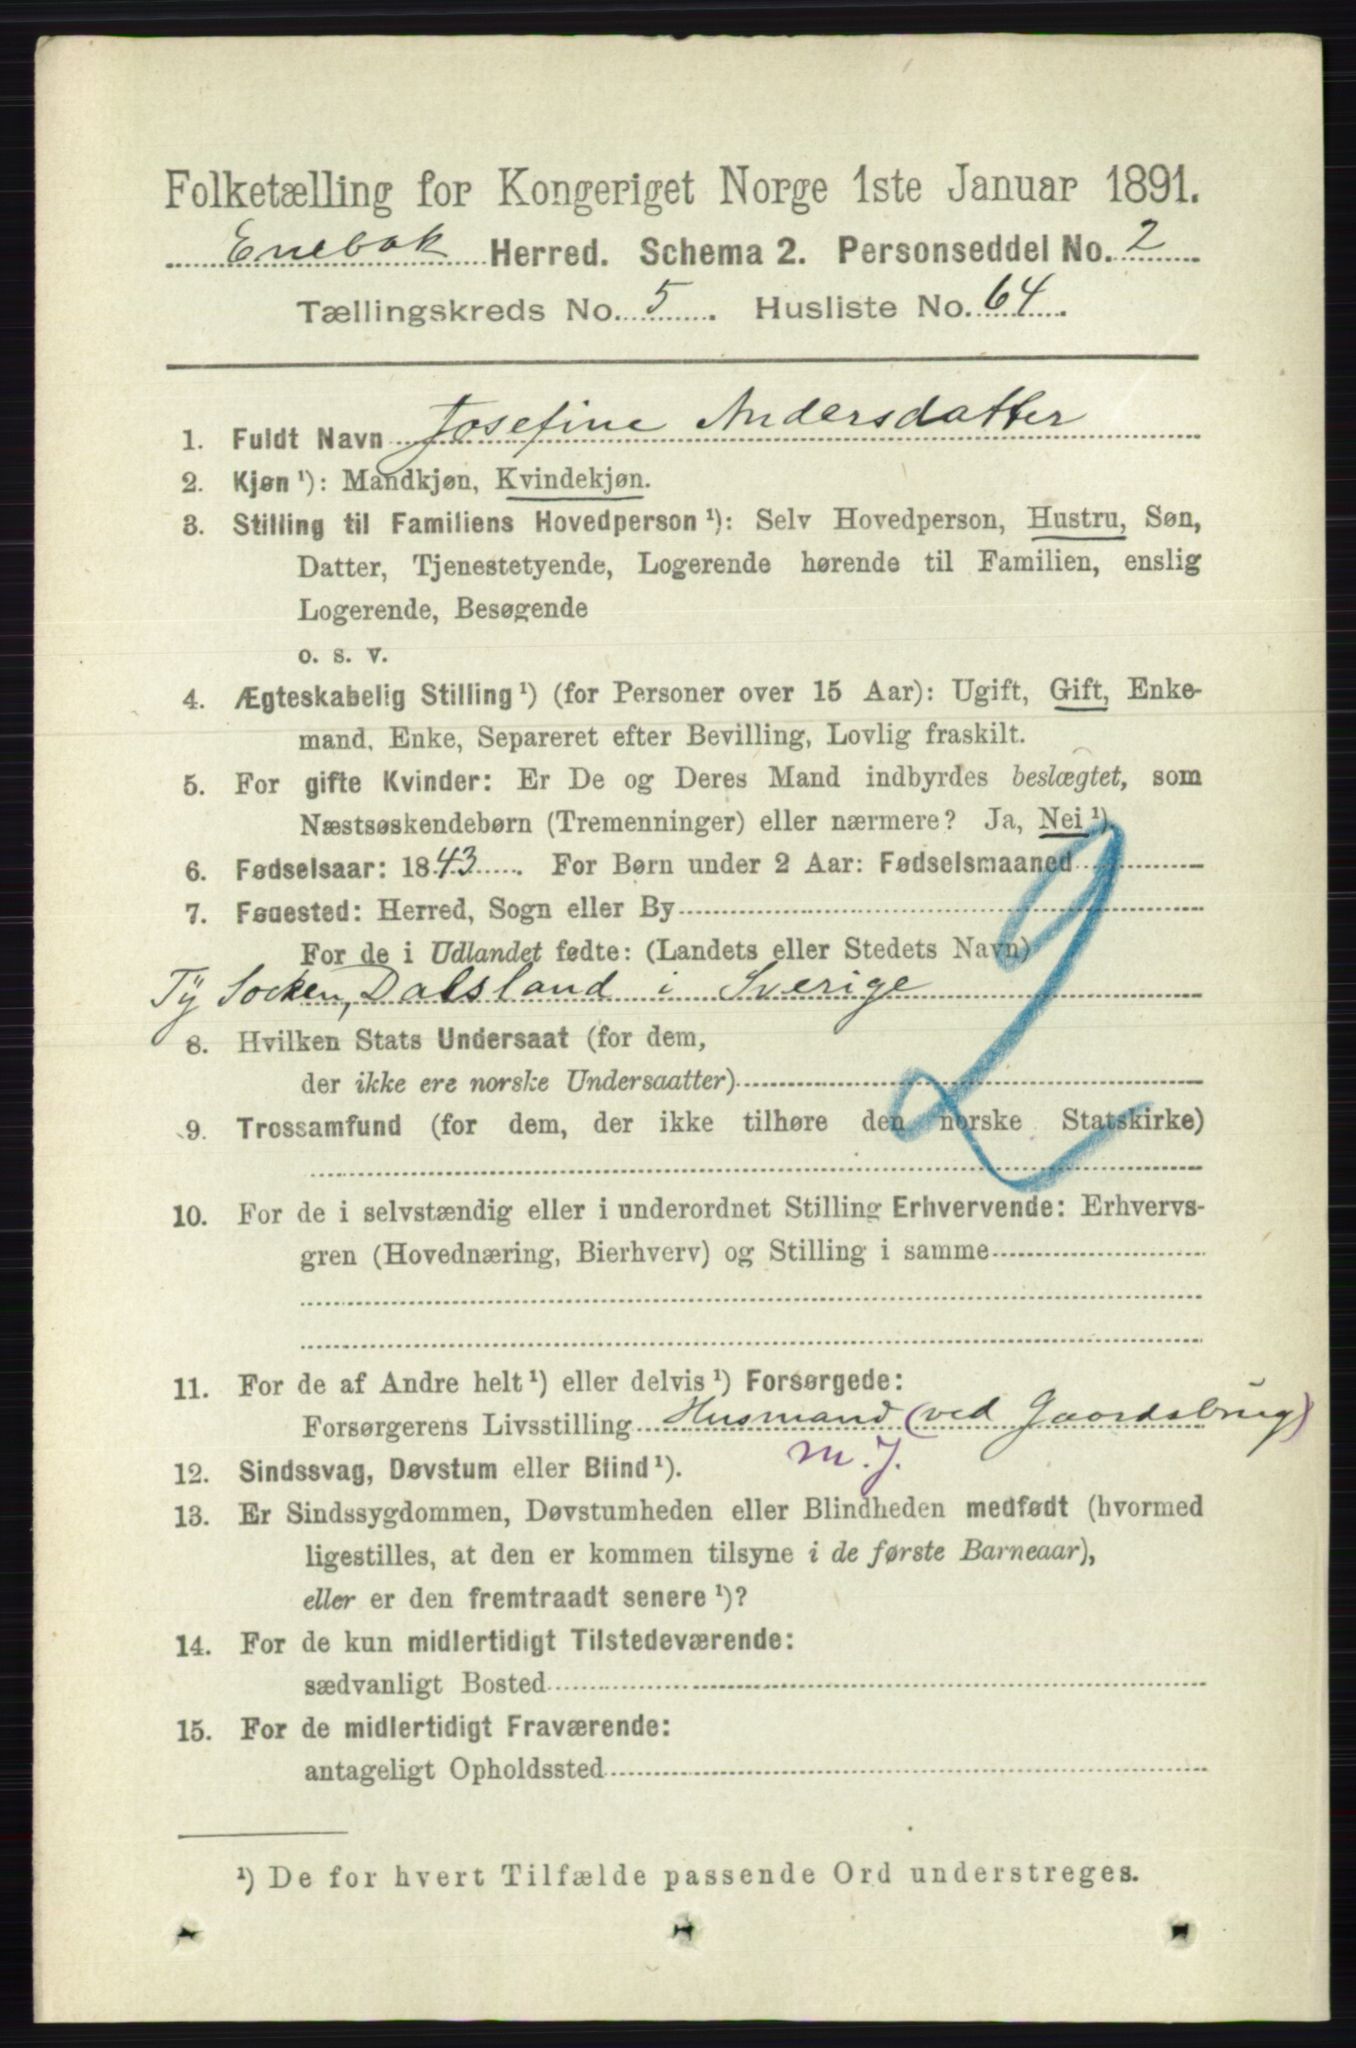 Folketælling for Kongeriget Norge 1ste Januar 1891.
Enebak Herred. Schema 2. Personseddel No. 2
Tællingskreds No. 5. Husliste No. 64.
1. Fuldt Navn Josefine Andersdatter
2. Kjøn ¹): Mandkjøn, Kvindekjøn.
3. Stilling til Familiens Hovedperson ¹): Selv Hovedperson, Hustru, Søn,
Datter, Tjenestetyende, Logerende hørende til Familien, enslig
Logerende, Besøgende
o. s. v.
4. Ægteskabelig Stilling ¹) (for Personer over 15 Aar): Ugift, Gift, Enke-
mand, Enke, Separeret efter Bevilling, Lovlig fraskilt.
5. For gifte Kvinder: Er De og Deres Mand indbyrdes beslægtet, som
Næstsøskendebørn (Tremenninger) eller nærmere? Ja, Nei ¹)
6. Fødselsaar: 1843. For Børn under 2 Aar: Fødselsmaaned
7. Fødested: Herred, Sogn eller By
For de i Udlandet fødte: (Landets eller Stedets Navn)
Tÿ Socken, Dalsland i Sverige
8. Hvilken Stats Undersaat (for dem,
der ikke ere norske Undersaatter)
2
9. Trossamfund (for dem, der ikke tilhøre den norske Statskirke)
10. For de i selvstændig eller i underordnet Stilling Erhvervende: Erhvervs-
gren (Hovednæring, Bierhverv) og Stilling i samme
11. For de af Andre helt ¹) eller delvis ¹) Forsørgede:
Forsørgerens Livsstilling Husmand (ved Gaardsbrug)
m. J.
12. Sindssvag, Døvstum eller Blind ¹).
13. Er Sindssygdommen, Døvstumheden eller Blindheden medfødt (hvormed
ligestilles, at den er kommen tilsyne i de første Barneaar),
eller er den fremtraadt senere ¹)?
14. For de kun midlertidigt Tilstedeværende:
sædvanligt Bosted
15. For de midlertidigt Fraværende:
antageligt Opholdssted
¹) De for hvert Tilfælde passende Ord understreges.